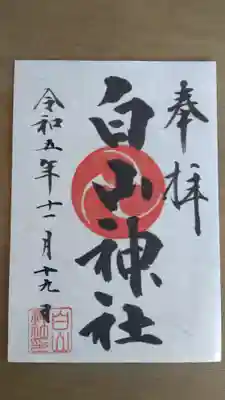 奉拝
白山神社
令和五年十一月十九日